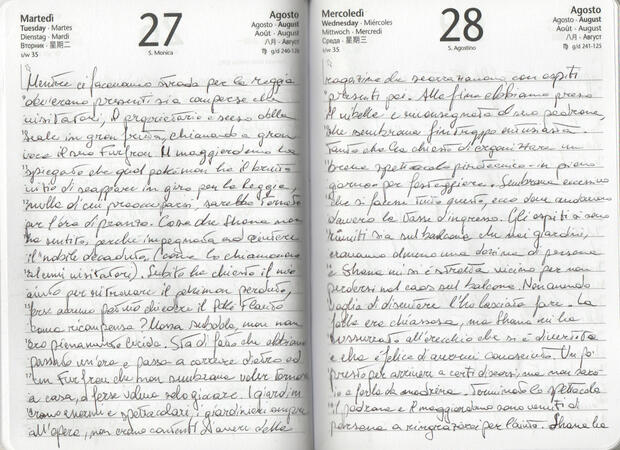 Martedì
Tuesday · Martes
Dienstag · Mardi
Вторник · 星期二
s/w 35
27
S. Monica
Agosto
Agosto · August
Août · August
八月 · Август
g/d 240-126
Mentre ci facevamo strada per la reggia
dov'erano presenti sia comparse che
visitatori, il proprietario è sceso dalle
scale in gran fretta, chiamando a gran
voce il suo Furfrou. Il maggiordomo ha
spiegato che quel pokémon ha il brutto
vizio di scappare in giro per la Reggia,
nulla di cui preoccuparsi, sarebbe tornato
per l'ora di pranzo. Cosa che Shana non
ha sentito, perché impegnata ad aiutare
il nobile decaduto (come lo chiamavano
alcuni visitatori). Subito ha chiesto il mio
aiuto per ritrovare il pokémon perduto,
forse avremo potuto chiedere il Poké Flauto
come ricompensa? Mossa subdola, ma non
ero pienamente lucido. Sta di fatto che abbiamo
passato un'ora e passa a correre dietro ad
un Furfrou che non sembrava voler tornare
a casa, o forse voleva solo giocare. I giardini
erano enormi e spettacolari, i giardinieri sempre
all'opera, non erano contenti d'avere delle
Mercoledì
Wednesday · Miércoles
Mittwoch · Mercredi
Среда · 星期三
s/w 35
28
S. Agostino
Agosto
Agosto · August
Août · August
八月 · Август
g/d 241-125
ragazzine che scorrazzavano con ospiti
presenti poi. Alla fine abbiamo preso
il ribelle e consegnato al suo padrone,
che sembrava fin troppo entusiasta
tanto che ha chiesto d'organizzare un
breve spettacolo pirotecnico in pieno
giorno per festeggiare. Sembrava eccessivo
che si facesse tutto questo, ecco dove andavano
davvero le tasse d'ingresso. Gli ospiti si sono
riuniti sia sul balcone che nei giardini,
eravamo almeno una dozina di persone
e Shana mi si è stretta vicino per non
perderci nel caos sul balcone. Non avendo
voglia di discutere l'ho lasciata fare. La
folla era chiassosa, ma Shana mi ha
sussurrato all'orecchio che si è divertita
e che è felice d'avermi conosciuto. Un po'
presto per arrivare a certi discorsi, ma non sarò
io a farle da madrina. Terminato lo spettacolo
il padrone e il maggiordomo sono venuti di
persona a ringraziarci per l'aiuto. Shana ha